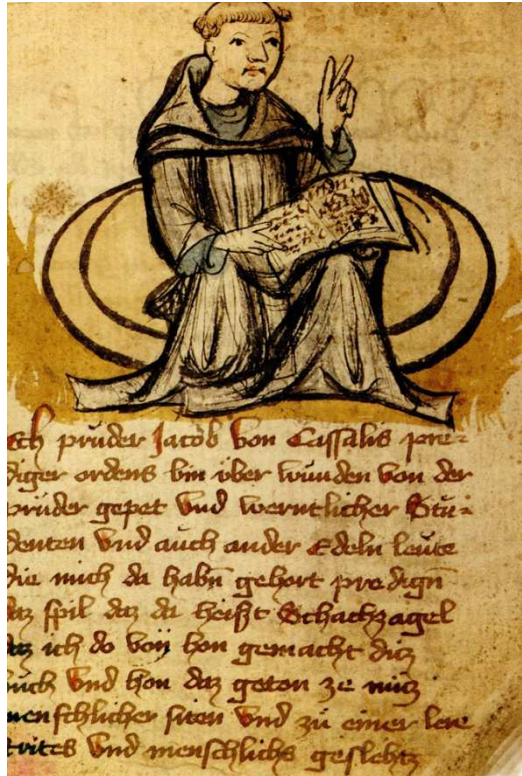 Ich pruder Jacob von Cassalis pre=
diger ordens bin uber wunden von der
pruder gepet vnd werntlicher Stu=
denten vnd auch ander Edeln leute
die mich da habn gehort predign
daz spil daz da heißt Schachzagel
daz ich do von hon gemacht diz
buch vnd hon daz geton ze nutz
menschlicher siten vnd zu einer lere
strites vnd menschlichs geslehtz